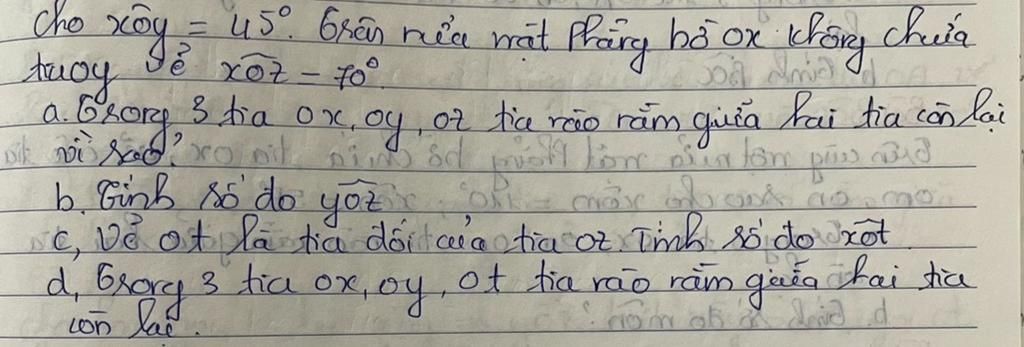 Cho xôy = 45°. Trên nửa mặt phẳng bờ ox không chứa
tia oy vẽ xôz = 70°
a. Trong 3 tia ox, oy, oz tia nào nằm giữa hai tia còn lại
vì sao?
b. Tính số đo yôz
c, Vẽ ot là tia đối của tia oz. Tính số đo xôt
d, Trong 3 tia ox, oy, ot tia nào nằm giữa hai tia
còn lại.